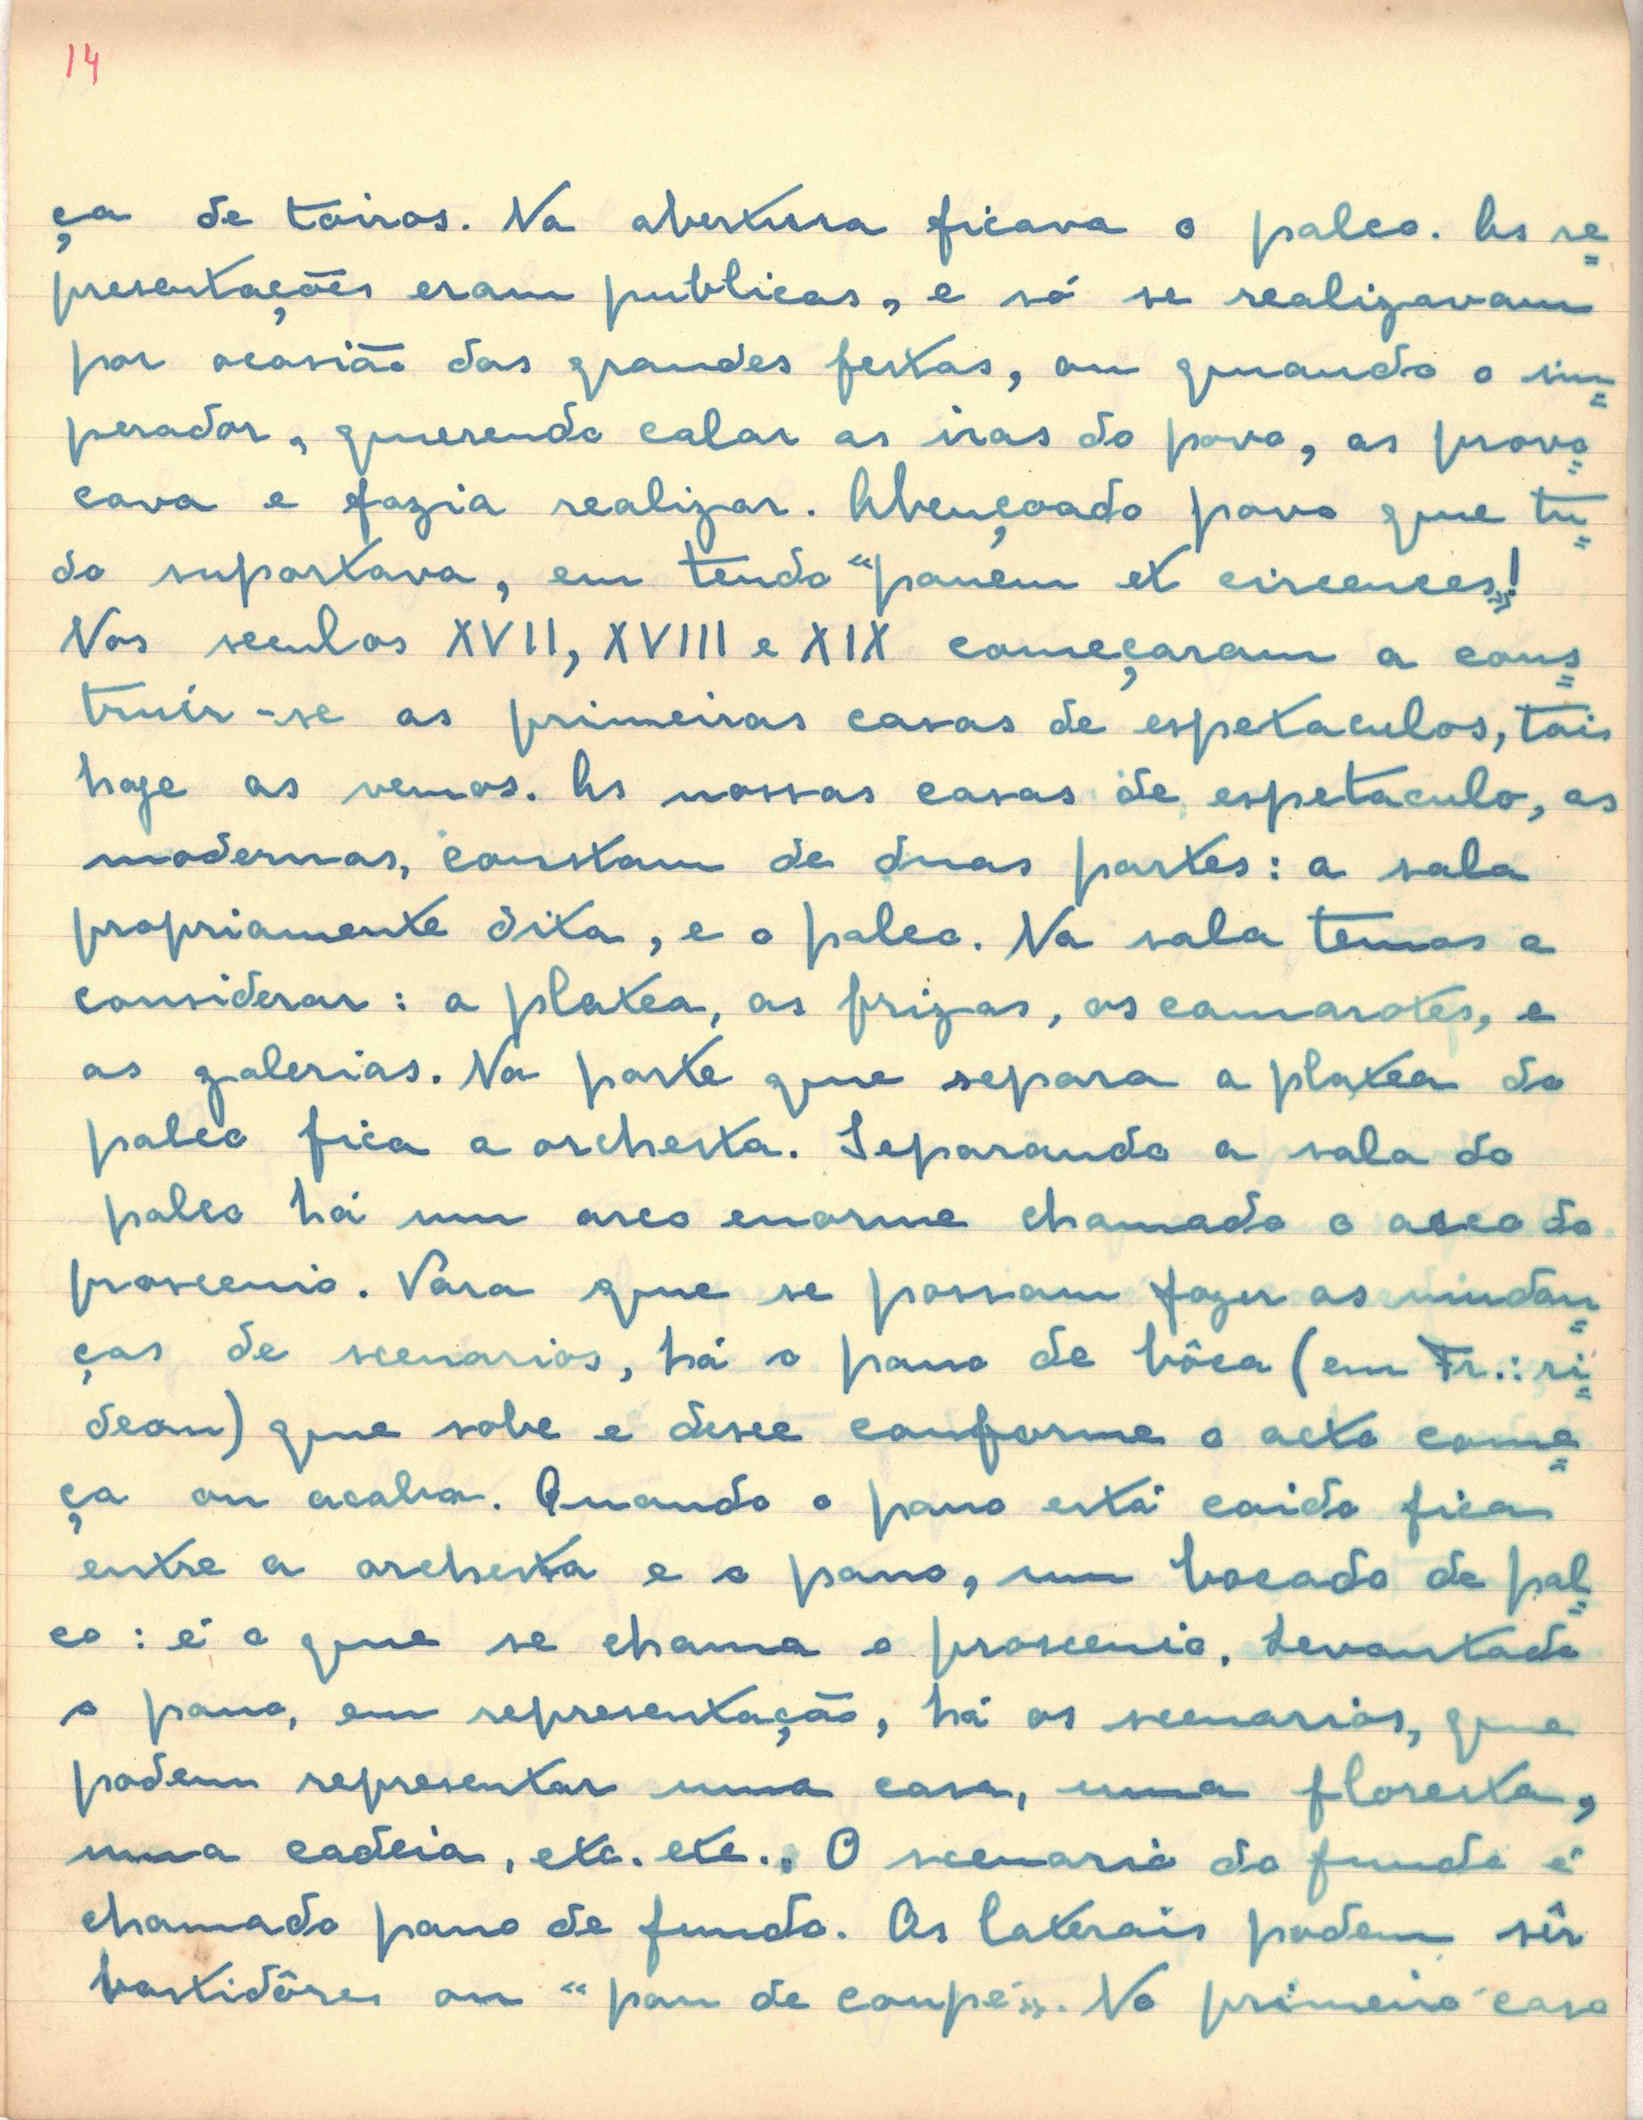 14
ça de toiros. Na abertura ficava o palco. As re=
presentações eram publicas, e só se realizavam
por ocasião das grandes festas, ou quando o im=
perador, querendo calar as iras do povo, as provo=
cava e fazia realizar. Abençoado povo que tu=
do suportava, em tendo "panem et circences"!
Nos seculos XVII, XVIII e XIX começaram a cons=
truír-se as primeiras casas de espetaculos, tais
hoje as vemos. As nossas casas de espetaculo, as
modernas, constam de duas partes: a sala
propriamente dita, e o palco. Na sala temos a
considerar: a platea, as frizas, os camarotes, e
as galerias. Na parte que separa a platea do
palco fica a orchesta. Separando a sala do
palco há um arco enorme chamado o arco do
proscenio. Para que se possam fazer as mudan=
ças de scenarios, há o pano de bôca (em Fr.: ri=
deau) que sobe e desce conforme o acto come=
ça ou acaba. Quando o pano está caido fica
entre a orchesta e o pano, um bocado de pal=
co: é o que se chama o proscenio. Levantado
o pano, em representação, há os scenarios, que
podem representar uma casa, uma floresta,
uma cadeia, etc. etc.. O scenario do fundo é
chamado pano de fundo. Os laterais podem sêr
bastidôres ou "pan de coupé". No primeiro caso